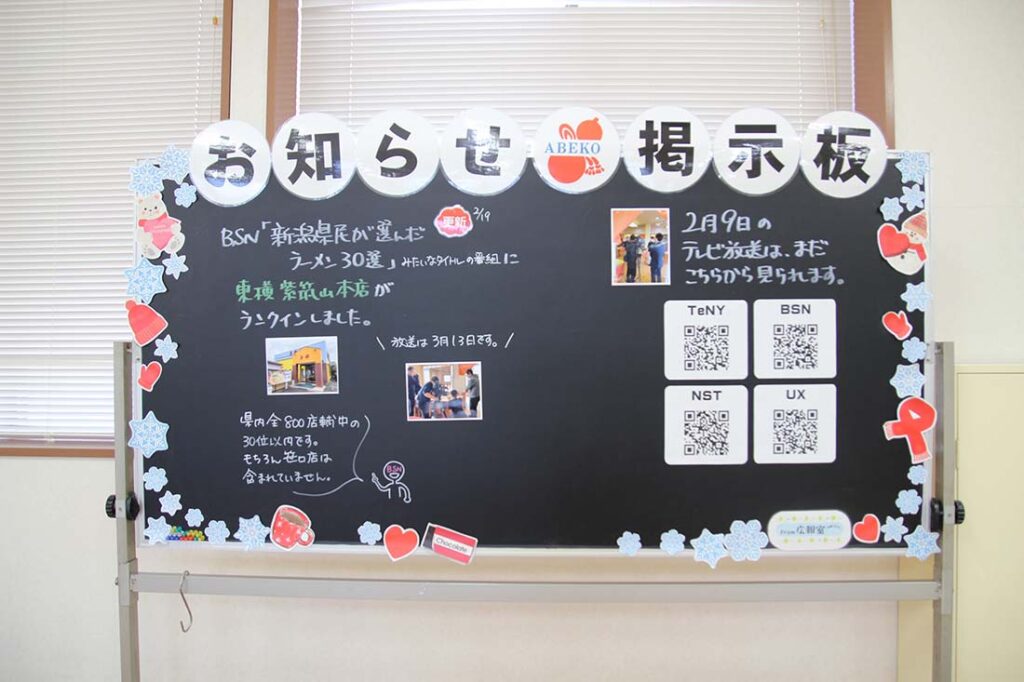 お知らせ ABEKO 掲示板
更新 2/19
BSN「新潟県民が選んだ
ラーメン30選」みたいなタイトルの番組に
東横 紫竹山本店が
ランクインしました。
\ 放送は3月13日です。/
県内全800店輔中の
30位以内です。
もちろん笹口店は
含まれていません。
BSN
2月9日の
テレビ放送は、まだ
こちらから見られます。
TeNY
BSN
NST
UX
Chocolate
From 広報室